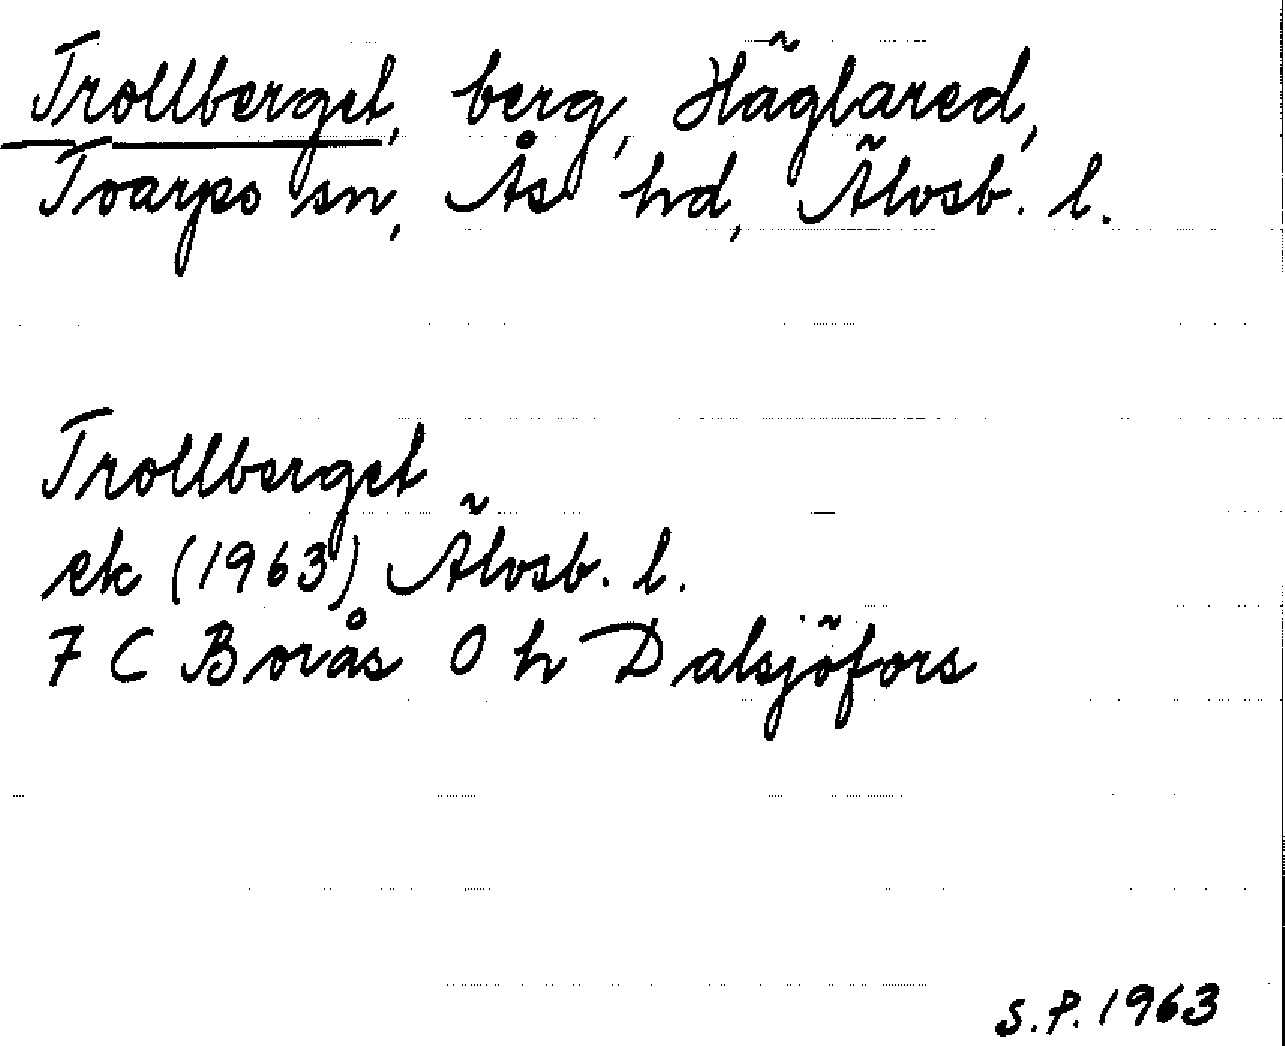 Trollberget, berg, Häglared,
Toarps sn, Ås hd, Älvsb. l.
Trollberget
ek (1963) Älvsb. l.
7 C Borås 0 h Dalsjöfors
S.P. 1963